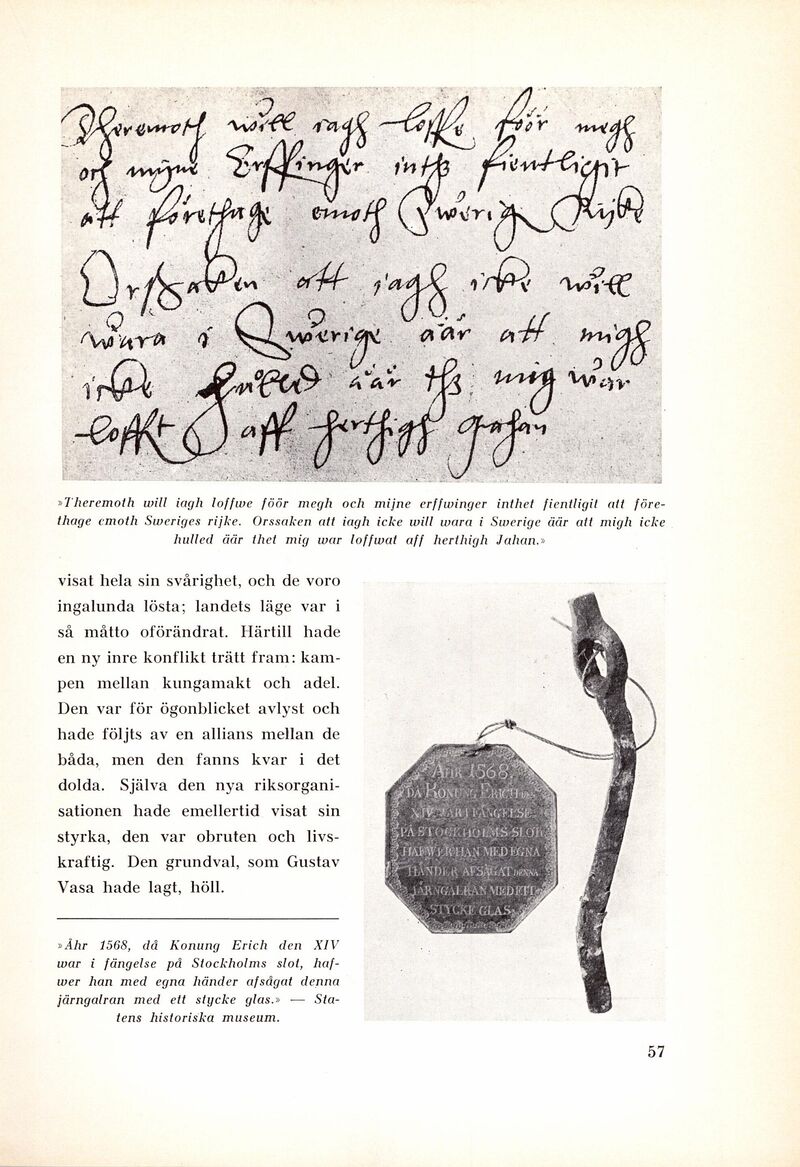 Theremoth will iagh loffwe föör megh
och mijne Erffwinger inthz fientligit
att förethage emoth Swerigis Rijke
Orszaken att iagh icke will
wara i Swerige äär att migh
icke hulled äär thz mig war
lofft aff herthigh Jahan
»Theremoth will iagh loffwe föör megh och mijne erffwinger inthet fientligit att före-
thage emoth Sweriges rijke. Orssaken att iagh icke will wara i Swerige äär att migh icke
hulled äär thet mig war loffwat aff herthigh Jahan.»
visat hela sin svårighet, och de voro
ingalunda lösta; landets läge var i
så måtto oförändrat. Härtill hade
en ny inre konflikt trätt fram: kam-
pen mellan kungamakt och adel.
Den var för ögonblicket avlyst och
hade följts av en allians mellan de
båda, men den fanns kvar i det
dolda. Själva den nya riksorgani-
sationen hade emellertid visat sin
styrka, den var obruten och livs-
kraftig. Den grundval, som Gustav
Vasa hade lagt, höll.
»Åhr 1568, då Konung Erich den XIV
war i fängelse på Stockholms slot, haf-
wer han med egna händer afsågat denna
järngalran med ett stycke glas.» — Sta-
tens historiska museum.
ÅHR 1568,
DÅ KONUNG ERICH DEN
XIV. WAR I FÄNGELSE
PÅ STOCKHOLMS SLOTT
HAFWER HAN MED EGNA
HÄNDER AFSÅGAT DENNA
JÄRNGALRAN MED ETT
STYCKE GLAS.
57